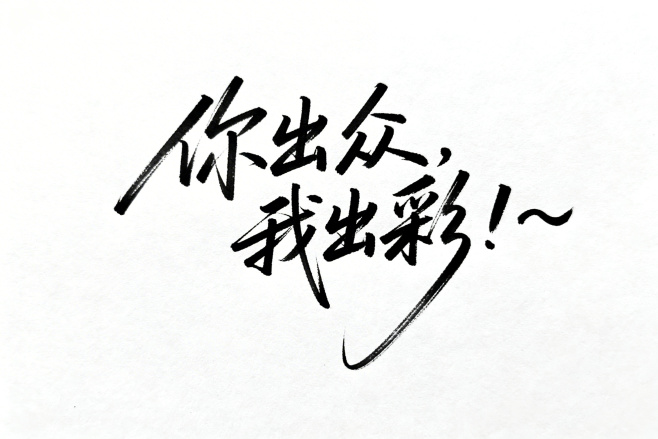 你出众，
我出彩！~